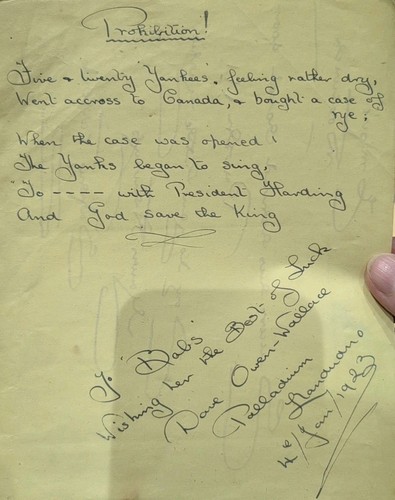 Prohibition!
Five & twenty "Yankees", feeling rather dry,
Went accross to Canada, & bought a case of
rye;
When the case was opened,
The Yanks began to sing,
"To ---- with President Harding
And God save the King
To "Babs"
Wishing her the Best of Luck
Dave Owen-Wallace
Palladium
Llandudno
4e/Jan/1923